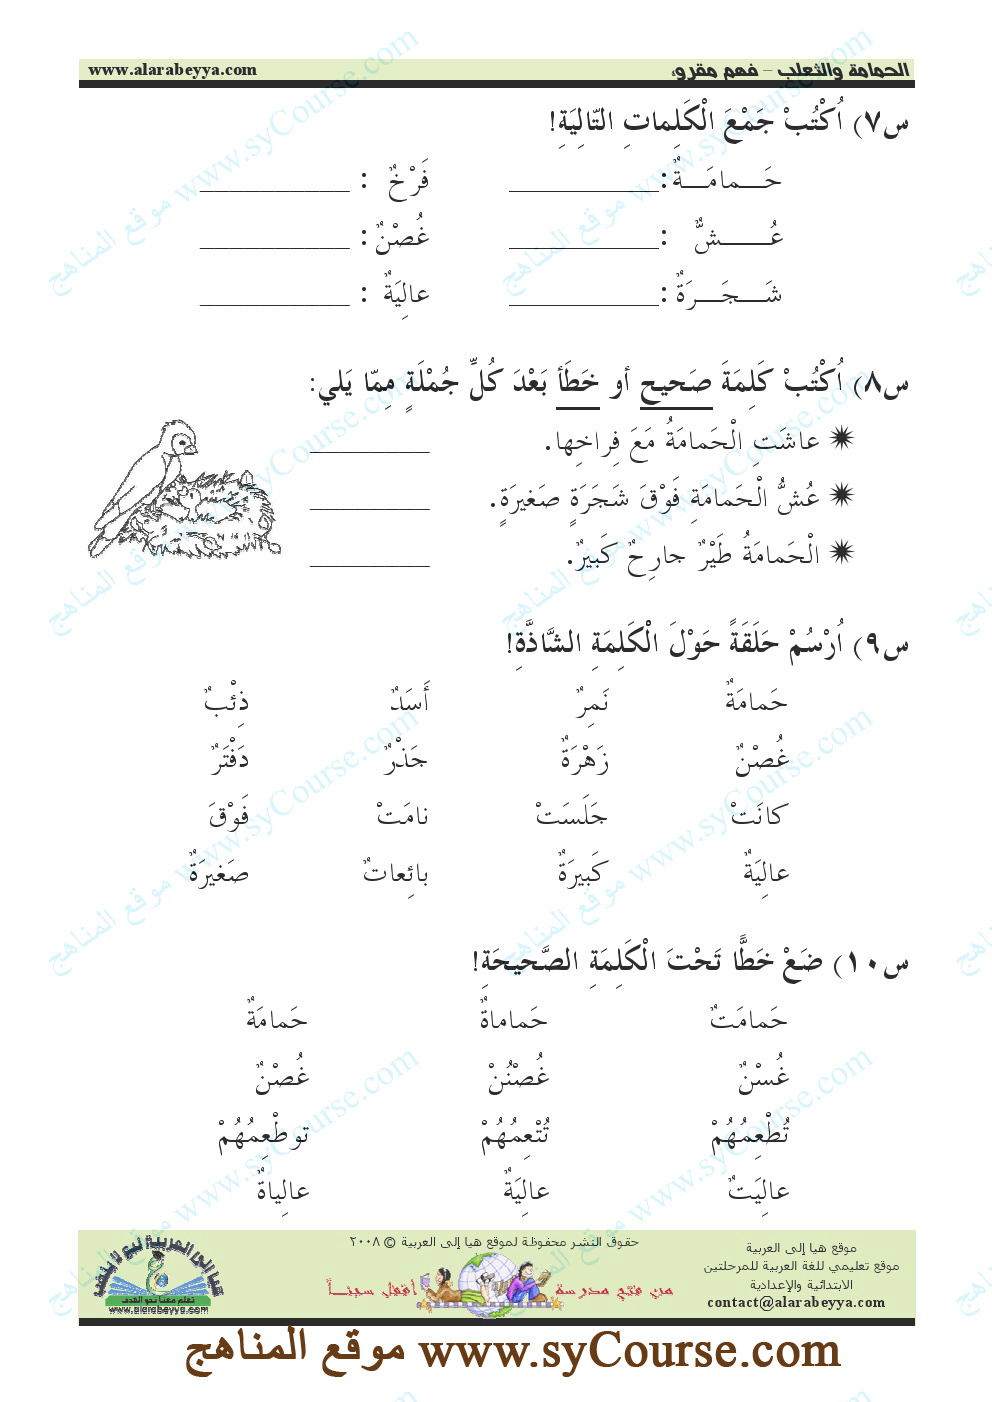 الحمامة والثعلب - فهم مقروء www.alarabeyya.com
س٧) اُكْتُبْ جَمْعَ الْكَلِماتِ التّالِيَةِ!
حَـــمامَـــةٌ: __________ فَرْخٌ : __________
عُـــــشٌّ : __________ غُصْنٌ: __________
شَـــجَـــرَةٌ: __________ عالِيَةٌ : __________
س٨) اُكْتُبْ كَلِمَةَ صَحيح أو خَطَأ بَعْدَ كُلِّ جُمْلَةٍ مِمّا يَلي:
✷ عاشَتِ الْحَمامَةُ مَعَ فِراخِها. ________
✷ عُشُّ الْحَمامَةِ فَوْقَ شَجَرَةٍ صَغيرَةٍ. ________
✷ الْحَمامَةُ طَيْرٌ جارِحٌ كَبيرٌ. ________
س٩) اُرْسُمْ حَلَقَةً حَوْلَ الْكَلِمَةِ الشَّاذَّةِ!
حَمامَةٌ نَمِرٌ أَسَدٌ ذِئْبٌ
غُصْنٌ زَهْرَةٌ جَذْرٌ دَفْتَرٌ
كانَتْ جَلَسَتْ نامَتْ فَوْقَ
عالِيَةٌ كَبيرَةٌ بائِعاتٌ صَغيرَةٌ
س١٠) ضَعْ خَطًّا تَحْتَ الْكَلِمَةِ الصَّحيحَةِ!
حَمامَتٌ حَماماةٌ حَمامَةٌ
غُسْنٌ غُصْنُنْ غُصْنٌ
تُطْعِمُهُمْ تُتْعِمُهُمْ توطْعِمُهُمْ
عالِيَتٌ عالِيَةٌ عالِياةٌ
موقع هيا إلى العربية
موقع تعليمي للغة العربية للمرحلتين
الابتدائية والإعدادية
contact@alarabeyya.com
حقوق النشر محفوظة لموقع هيا إلى العربية © ٢٠٠٨
من فتح مدرسة أقفل سجنـــاً
هيا إلى العربية
نتعلم معنا نحو الهدف
www.alarabeyya.com
www.syCourse.com موقع المناهج